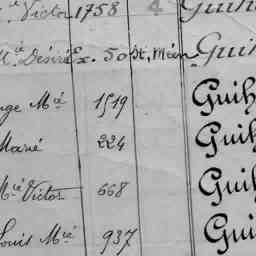 ie Victor 1758 4 Guih
M.ie Désiré Ex. 50 St, Méen Guih
ge M.ie 1519 Guih
Marie 224 Guih
M.ie Victor 668 Guih
Louis M.ie 937 Gui